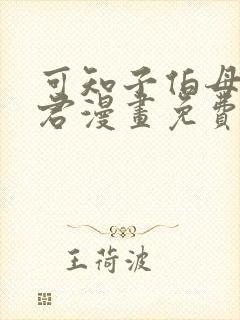 可知子伯母
君漫畫免費
王荷波